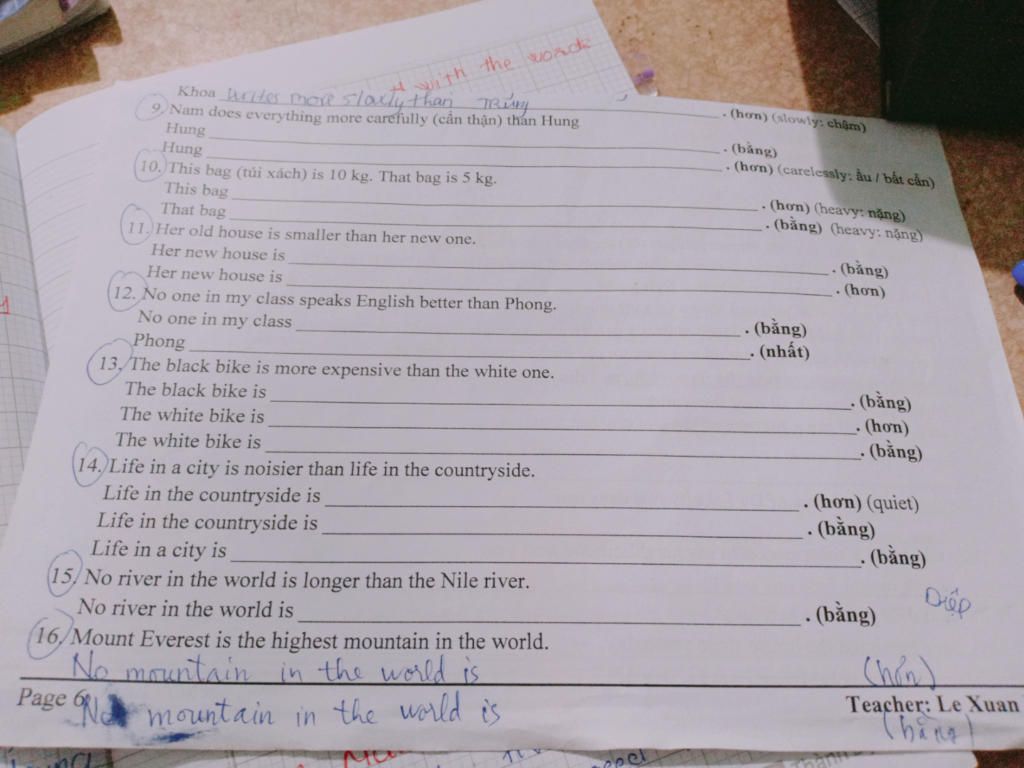 with the words
Khoa writes more slowly than Trung . (hơn) (slowly: chậm)
9. Nam does everything more carefully (cẩn thận) than Hung
Hung ______ . (bằng)
Hung ______ . (hơn) (carelessly: ẩu / bất cẩn)
10. This bag (túi xách) is 10 kg. That bag is 5 kg.
This bag ______ . (hơn) (heavy: nặng)
That bag ______ . (bằng) (heavy: nặng)
11. Her old house is smaller than her new one.
Her new house is ______ . (bằng)
Her new house is ______ . (hơn)
12. No one in my class speaks English better than Phong.
No one in my class ______ . (bằng)
Phong ______ . (nhất)
13. The black bike is more expensive than the white one.
The black bike is ______ . (bằng)
The white bike is ______ . (hơn)
The white bike is ______ . (bằng)
14. Life in a city is noisier than life in the countryside.
Life in the countryside is ______ . (hơn) (quiet)
Life in the countryside is ______ . (bằng)
Life in a city is ______ . (bằng)
15. No river in the world is longer than the Nile river.
No river in the world is ______ . (bằng)
Diệp
16. Mount Everest is the highest mountain in the world.
No mountain in the world is (hơn)
Page 6 Teacher: Le Xuan
No mountain in the world is (bằng)